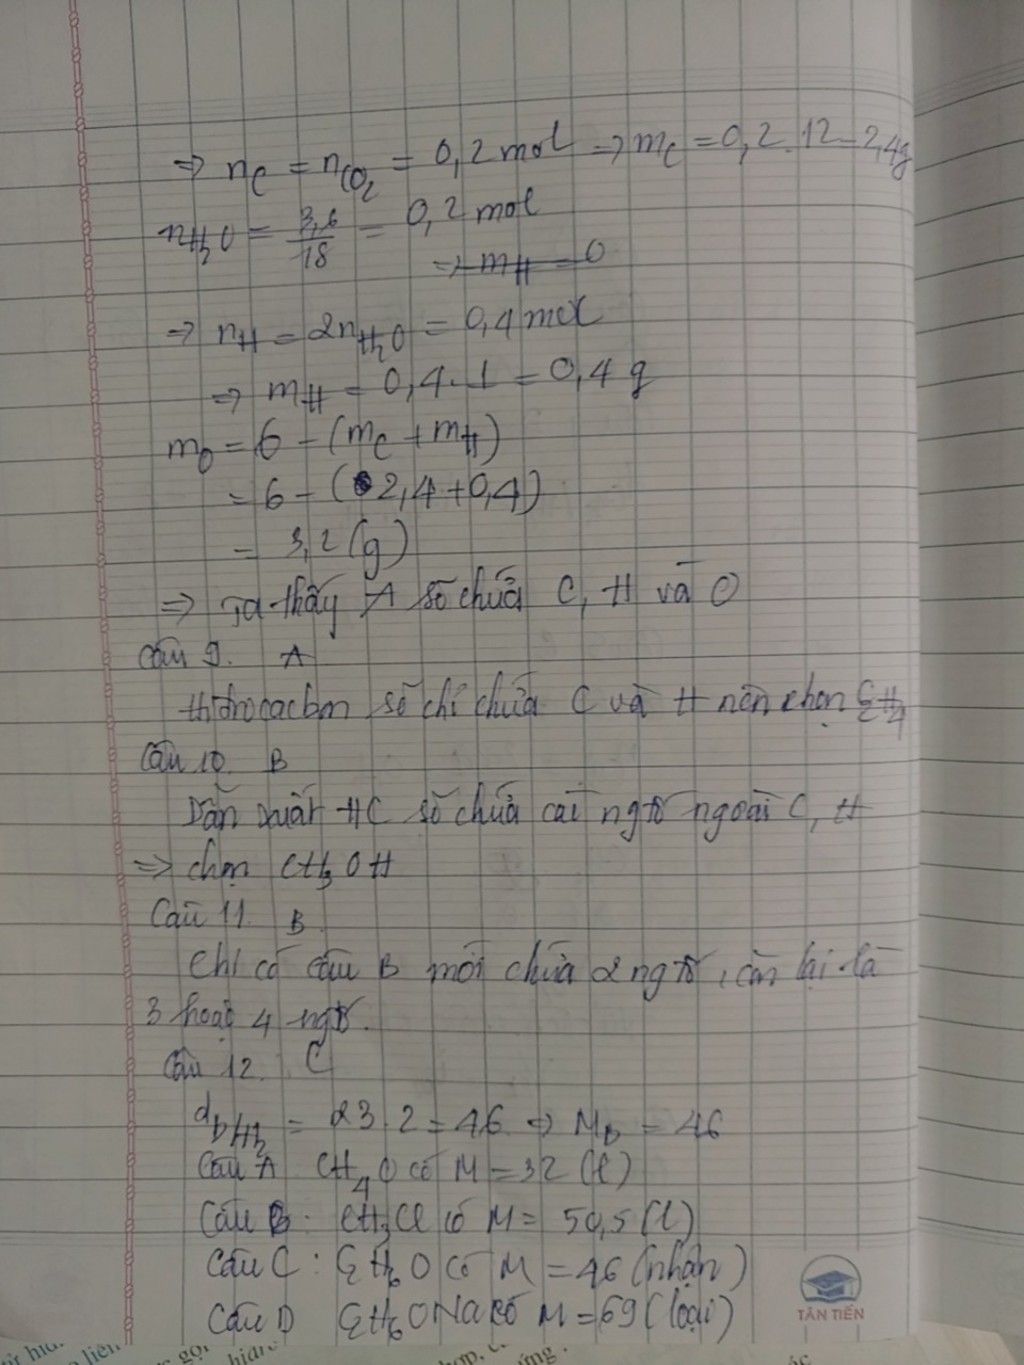 ⇒ nC = nCO2 = 0,2 mol ⇒ mC = 0,2.12 = 2,4g
nH2O = 3,6/18 = 0,2 mol
⇒ mH = 0
⇒ nH = 2nH2O = 0,4 mol
⇒ mH = 0,4.1 = 0,4 g
mO = 6 - (mC + mH)
= 6 - (2,4+0,4)
= 3,2 (g)
⇒ Ta thấy A sẽ chứa C, H và O
Câu 9. A
Hiđrocacbon sẽ chỉ chứa C và H nên chọn C2H4
Câu 10. B
Dẫn xuất HC sẽ chứa các ngtố ngoài C, H
⇒ chọn CH3OH
Câu 11. B
Chỉ có câu B mới chứa 2 ngtố, còn lại là
3 hoặc 4 ngtố.
Câu 12. C
dD/H2 = 23.2 = 46 ⇒ MD = 46
Câu A CH4O có M = 32 (l)
Câu B: CH3Cl có M = 50,5 (l)
Câu C: C2H6O có M = 46 (nhận)
Câu D C2H6ONa có M = 69 (loại)
TÂN TIẾN